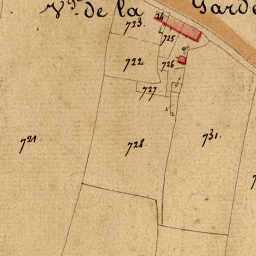 Vge de la Garde
723
725
722
726
727
721
728
731